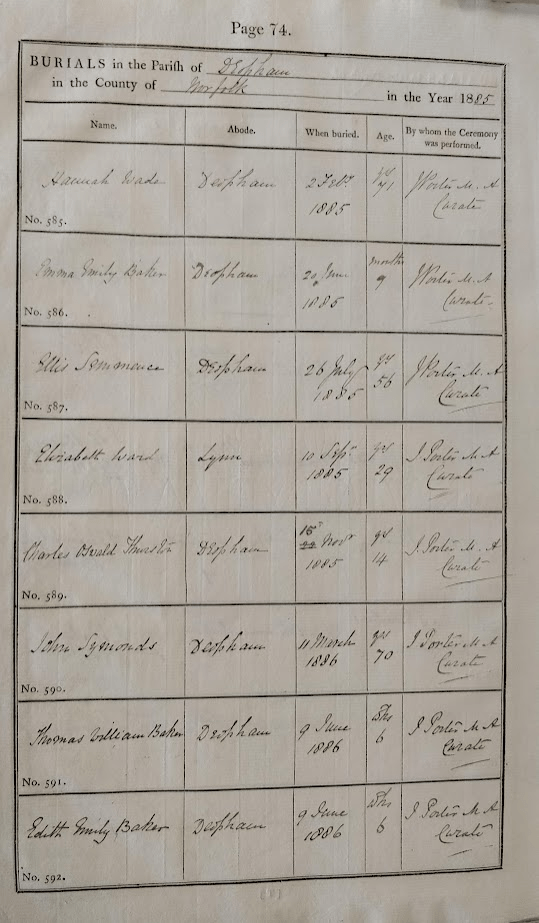 Page 74.
BURIALS in the Parish of Deopham
in the County of Norfolk in the Year 1885
Name. Abode. When buried. Age. By whom the Ceremony was performed.
Hannah Wade Deopham 2 Feby yrs J Porter M. A
No. 585. 1885 71 Curate
Emma Emily Baker Deopham 20 June months J Porter M. A
No. 586. 1885 9 Curate
Ellis Semmence Deopham 26 July yrs J Porter M. A
No. 587. 1885 56 Curate
Elizabeth Ward Lynn 10 Sepr yrs J Porter M. A
No. 588. 1885 29 Curate
Charles Oswald Thurston Deopham 15 Novr yrs J. Porter M. A
No. 589. 1885 14 Curate
John Symonds Deopham 11 March yrs J Porter M. A
No. 590. 1886 70 Curate
Thomas William Baker Deopham 9 June J Porter M. A
No. 591. 1886 6 Curate
Edith Emily Baker Deopham 9 June J Porter M. A
No. 592. 1886 6 Curate